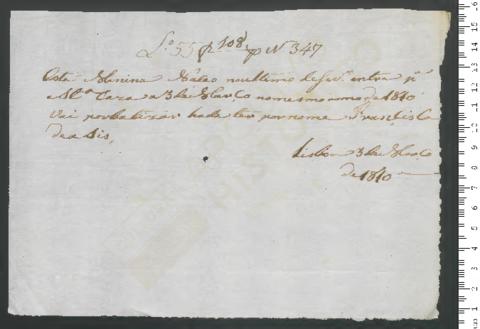 Lº 55 f 108 Nº 347
Esta Menina Naceo no ultimo de Fevº entra pª
a Stª Caza a 3 de Março no mesmo anno de 1840
Vai por baterzar hade ter por nome Francisca
de asis,
Lisboa 3 de Março
de 1840